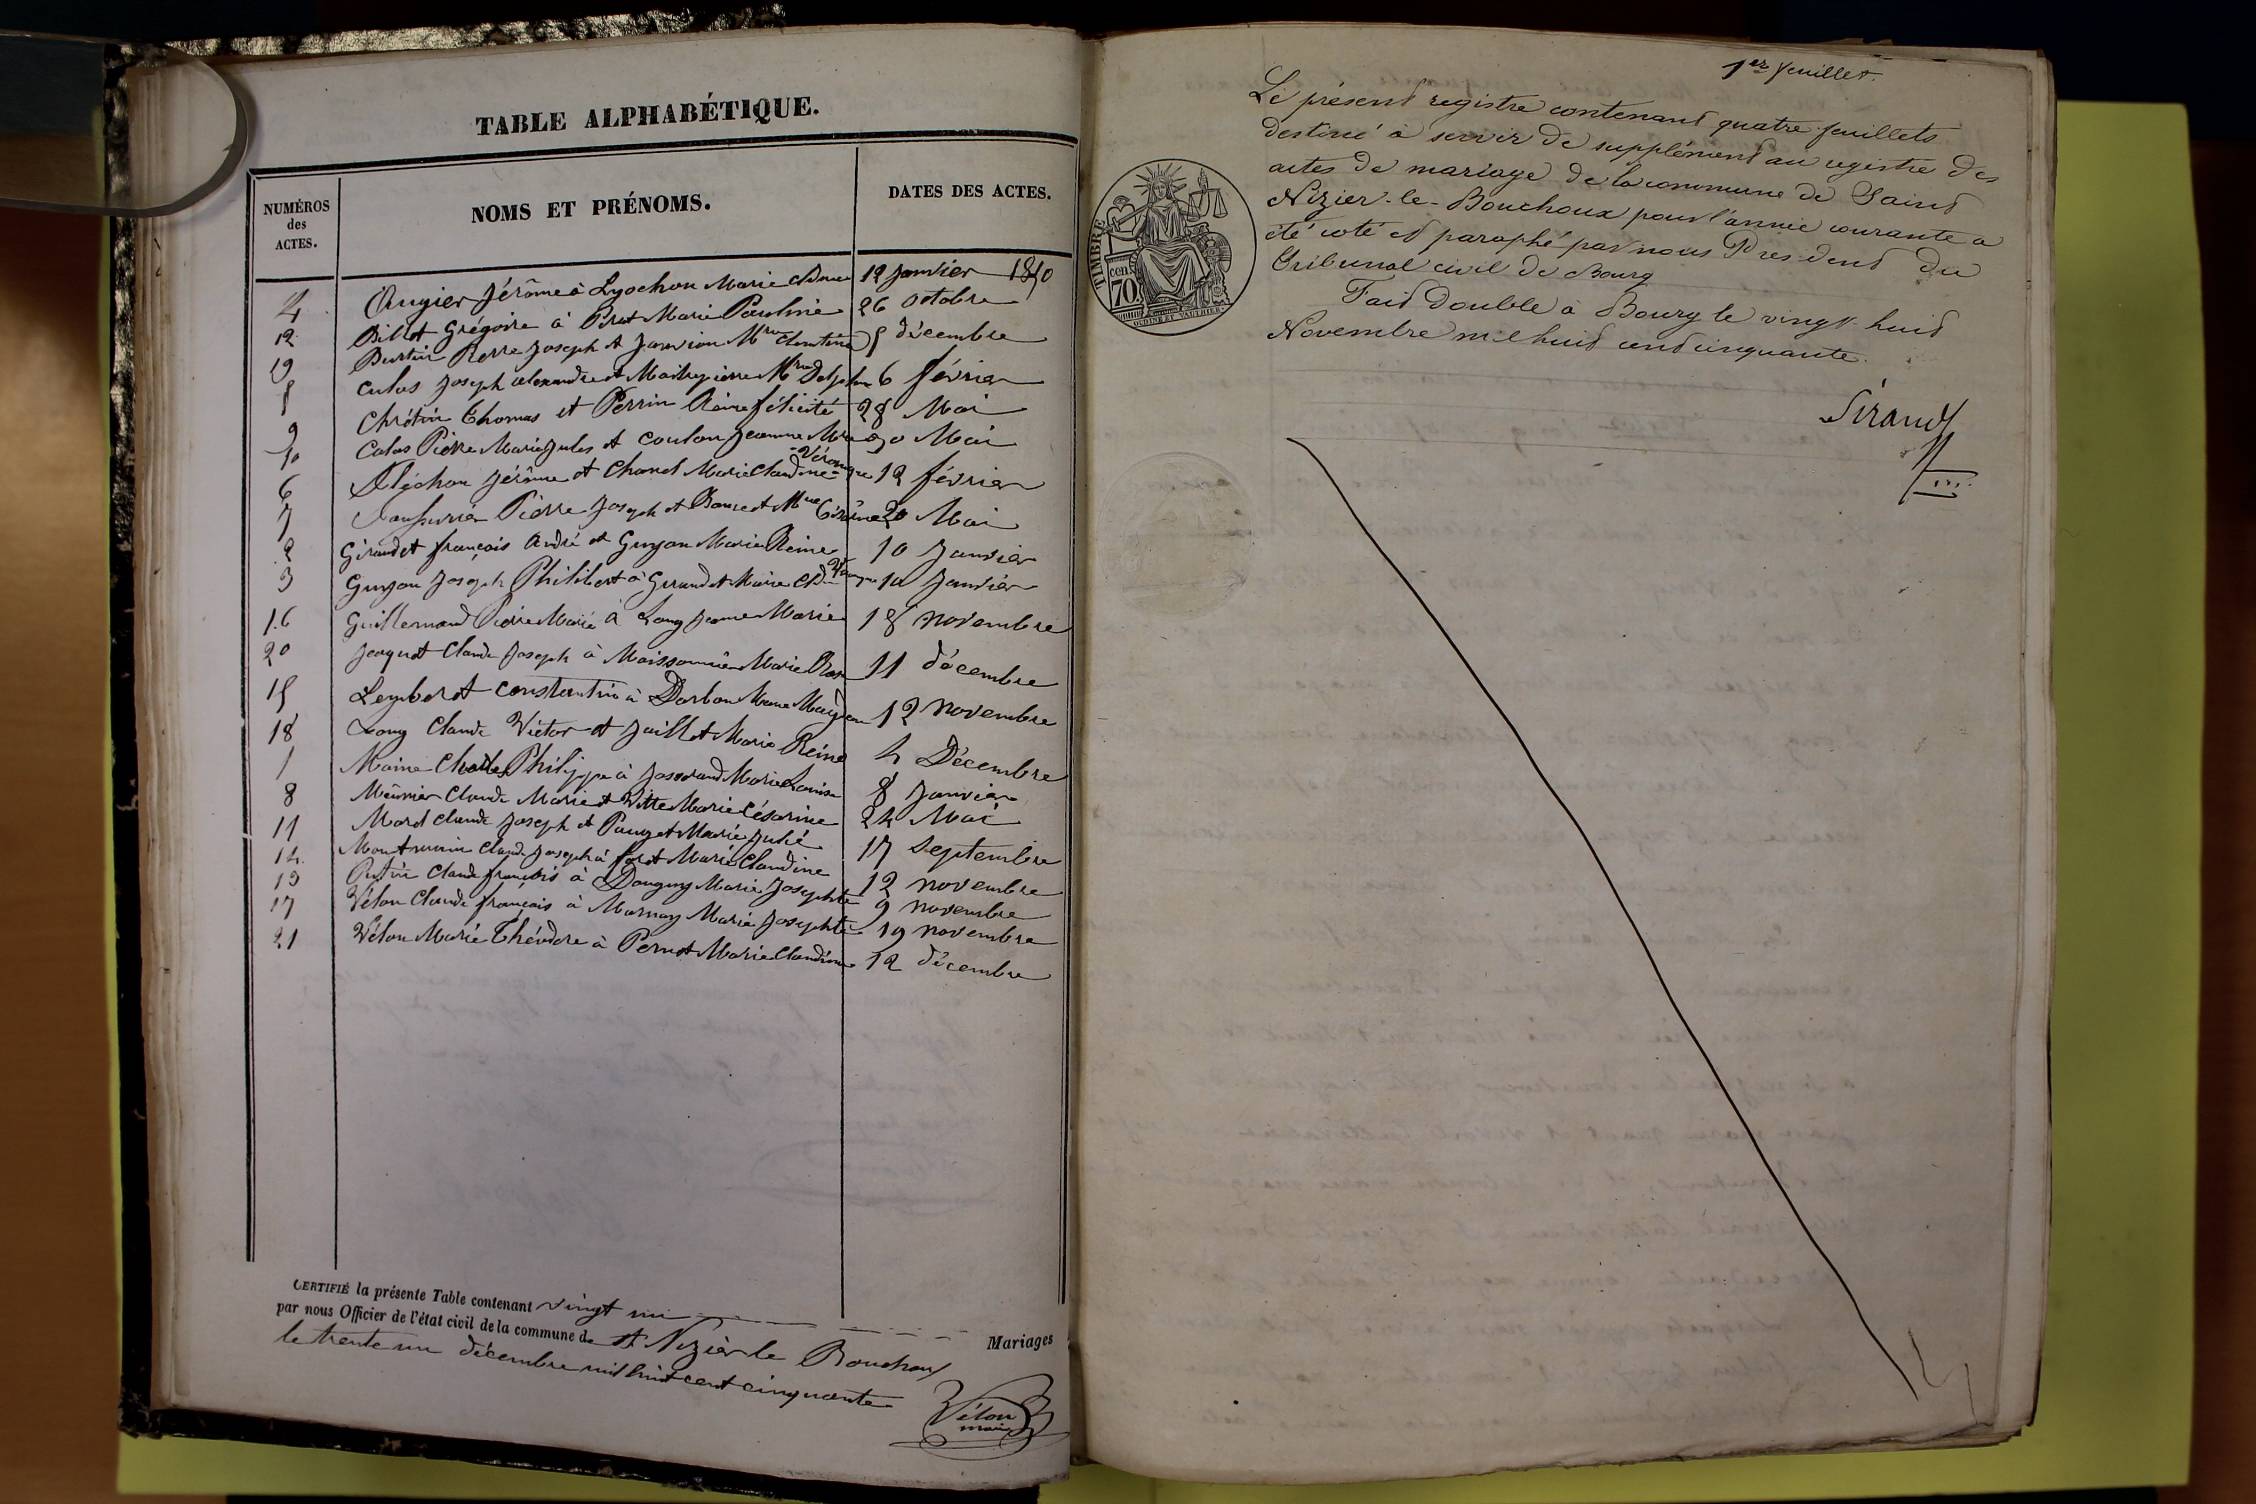 TABLE ALPHABÉTIQUE.
NUMÉROS des ACTES.
NOMS ET PRÉNOMS.
DATES DES ACTES.
4 Augier Jérôme à Lyochon Marie 12 janvier 1850
12 Billot Grégoire à Prat Marie Pauline 26 octobre
19 Pierre Joseph et Janvion 5 décembre
5 Calas Joseph alexandre et 6 février
9 Chrétin Thomas et Perrin Reine félicité 28 Mai
10 Calas Pierre Marie Jules et coulon Jeanne 30 Mai
6 Fléchon Jérôme et Chanel Marie Claudine 12 février
7 Pierre Joseph et 20 Mai
2 Giraudet françois André et Guyon Marie Reine 10 Janvier
3 Guyon Joseph Philibert à Giraudet Marie 10 Janvier
16 Guillemaud Pierre Marie à Long Jeanne Marie 18 novembre
20 Jacquet Claude Joseph à Maissonnier Marie 11 décembre
15 constantin à Darbon Marie 12 novembre
18 Long Claude Victor et Jaillet Marie Reine 4 Décembre
1 Maine Charles Philippe à Josserand Marie Louise 8 Janvier
8 Meûnier Claude Marie et Vitte Marie Césarine 24 Mai
11 Morel claude Joseph et Pauget Marie Julie 17 Septembre
14 Claude Joseph à Marie Claudine 12 novembre
13 Claude françois à Donguy Marie Josephte 9 novembre
17 Vélon Claude françois à Marnay Marie Josephte 19 novembre
21 Vélon Marie Théodore à Pernet Marie Claudine 12 décembre
CERTIFIÉ la présente Table contenant vingt un Mariages
par nous Officier de l'état civil de la commune de St Nizier le Bouchoux
le trente un décembre mil huit cent cinquante
Vélon
maire
1er feuillet.
Le présent registre contenant quatre feuillets
destiné à servir de supplément au registre des
actes de mariage de la commune de Saint
Nizier-le-Bouchoux pour l'année courante a
été coté et paraphé par nous Président du
Tribunal civil de Bourg
Fait double à Bourg le vingt huit
Novembre mil huit cent cinquante.
Sirand
TIMBRE
70 cen.